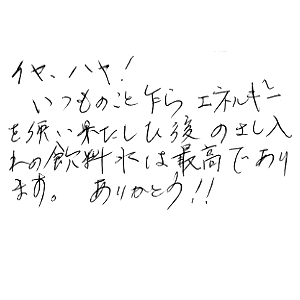 イヤ、ハヤ!
いつものこと乍ら エネルギー
を使い果たしひ後 のさし入
れの飲料水は最高であり
ます。 ありがとう!!